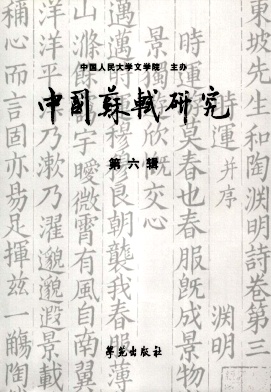 中国人民大学文学院 主办
中國蘇軾研究
第六辑
学苑出版社
東坡先生和陶淵明詩卷第三
時運 并序 淵明
運莫春也春服既成景物
景獨 欣 交心
邁邁 穆 良朝襲我春 薄
山滌 宇曖微霄有風自南翼
洋洋平 乃漱乃濯邈邈遐景載
稱心而言固亦易足揮兹一觴陶